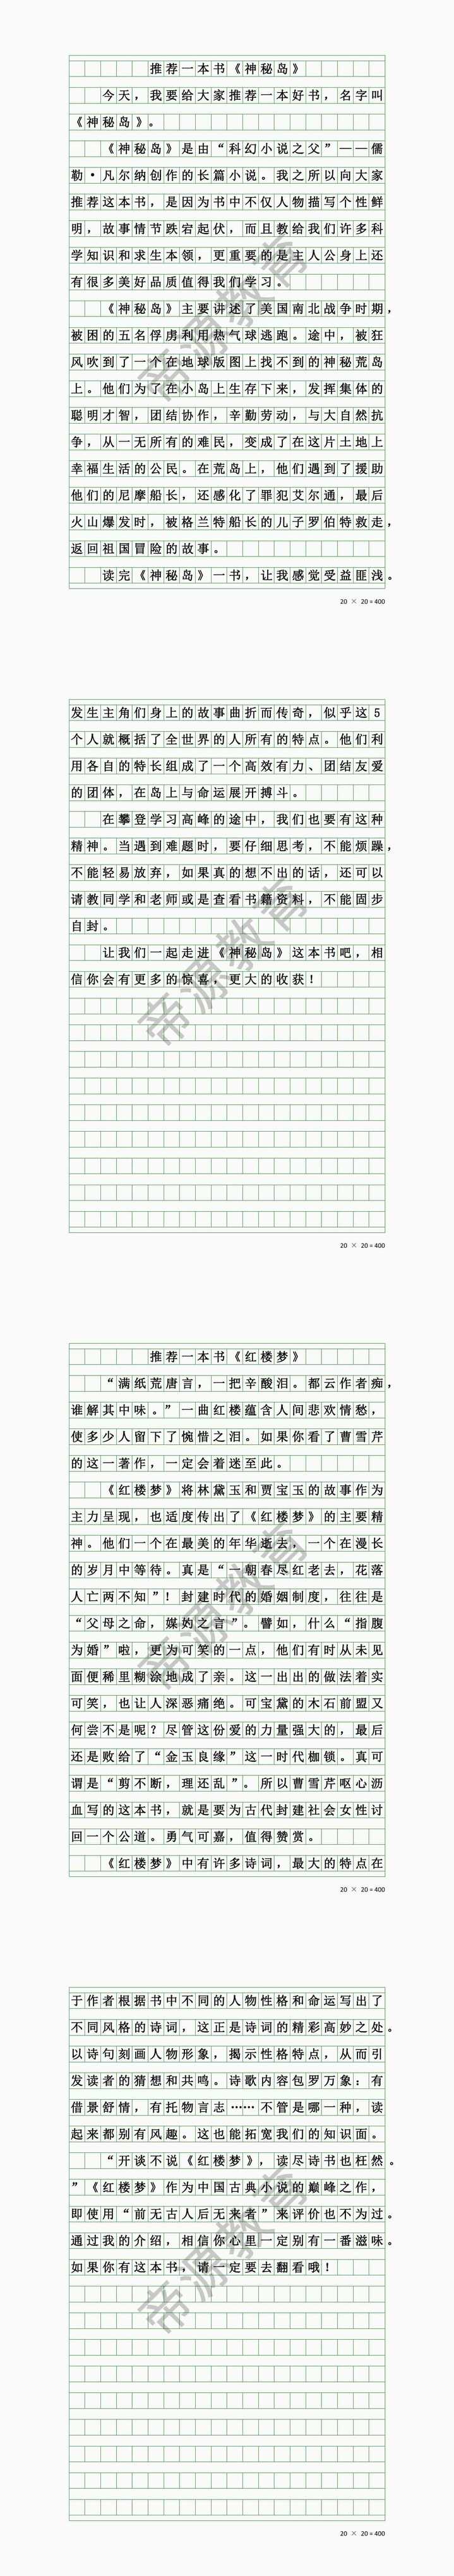 推荐一本书《神秘岛》
今天，我要给大家推荐一本好书，名字叫
《神秘岛》。
《神秘岛》是由“科幻小说之父”——儒
勒·凡尔纳创作的长篇小说。我之所以向大家
推荐这本书，是因为书中不仅人物描写个性鲜
明，故事情节跌宕起伏，而且教给我们许多科
学知识和求生本领，更重要的是主人公身上还
有很多美好品质值得我们学习。
《神秘岛》主要讲述了美国南北战争时期，
被困的五名俘虏利用热气球逃跑。途中，被狂
风吹到了一个在地球版图上找不到的神秘荒岛
上。他们为了在小岛上生存下来，发挥集体的
聪明才智，团结协作，辛勤劳动，与大自然抗
争，从一无所有的难民，变成了在这片土地上
幸福生活的公民。在荒岛上，他们遇到了援助
他们的尼摩船长，还感化了罪犯艾尔通，最后
火山爆发时，被格兰特船长的儿子罗伯特救走，
返回祖国冒险的故事。
读完《神秘岛》一书，让我感觉受益匪浅。
20 × 20 = 400
发生主角们身上的故事曲折而传奇，似乎这5
个人就概括了全世界的人所有的特点。他们利
用各自的特长组成了一个高效有力、团结友爱
的团体，在岛上与命运展开搏斗。
在攀登学习高峰的途中，我们也要有这种
精神。当遇到难题时，要仔细思考，不能烦躁，
不能轻易放弃，如果真的想不出的话，还可以
请教同学和老师或是查看书籍资料，不能固步
自封。
让我们一起走进《神秘岛》这本书吧，相
信你会有更多的惊喜，更大的收获！
20 × 20 = 400
推荐一本书《红楼梦》
“满纸荒唐言，一把辛酸泪。都云作者痴，
谁解其中味。”一曲红楼蕴含人间悲欢情愁，
使多少人留下了惋惜之泪。如果你看了曹雪芹
的这一著作，一定会着迷至此。
《红楼梦》将林黛玉和贾宝玉的故事作为
主力呈现，也适度传出了《红楼梦》的主要精
神。他们一个在最美的年华逝去，一个在漫长
的岁月中等待。真是“一朝春尽红老去，花落
人亡两不知”！封建时代的婚姻制度，往往是
“父母之命，媒妁之言”。譬如，什么“指腹
为婚”啦，更为可笑的一点，他们有时从未见
面便稀里糊涂地成了亲。这一出出的做法着实
可笑，也让人深恶痛绝。可宝黛的木石前盟又
何尝不是呢？尽管这份爱的力量强大的，最后
还是败给了“金玉良缘”这一时代枷锁。真可
谓是“剪不断，理还乱”。所以曹雪芹呕心沥
血写的这本书，就是要为古代封建社会女性讨
回一个公道。勇气可嘉，值得赞赏。
《红楼梦》中有许多诗词，最大的特点在
20 × 20 = 400
于作者根据书中不同的人物性格和命运写出了
不同风格的诗词，这正是诗词的精彩高妙之处。
以诗句刻画人物形象，揭示性格特点，从而引
发读者的猜想和共鸣。诗歌内容包罗万象：有
借景舒情，有托物言志……不管是哪一种，读
起来都别有风趣。这也能拓宽我们的知识面。
“开谈不说《红楼梦》，读尽诗书也枉然。
”《红楼梦》作为中国古典小说的巅峰之作，
即使用“前无古人后无来者”来评价也不为过。
通过我的介绍，相信你心里一定别有一番滋味。
如果你有这本书，请一定要去翻看哦！
20 × 20 = 400
帝源教育
帝源教育
帝源教育
帝源教育